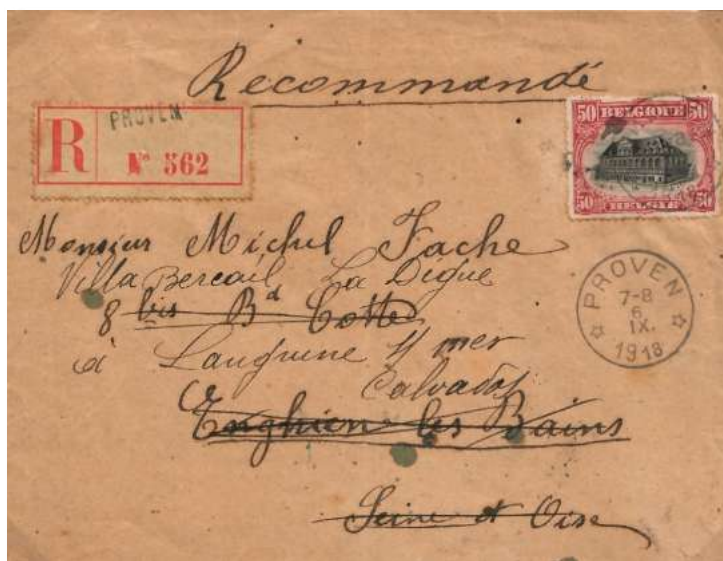 Recommandé
PROVEN
R Nº 562
50 BELGIQUE 50
50 BELGIË 50
Monsieur Michel Fache
Villa Bercail La Digue
8 bis Bd Cotte
à Langrune s/ mer
Calvados
Enghien les Bains
Seine et Oise
PROVEN
7-8
6
IX.
1918